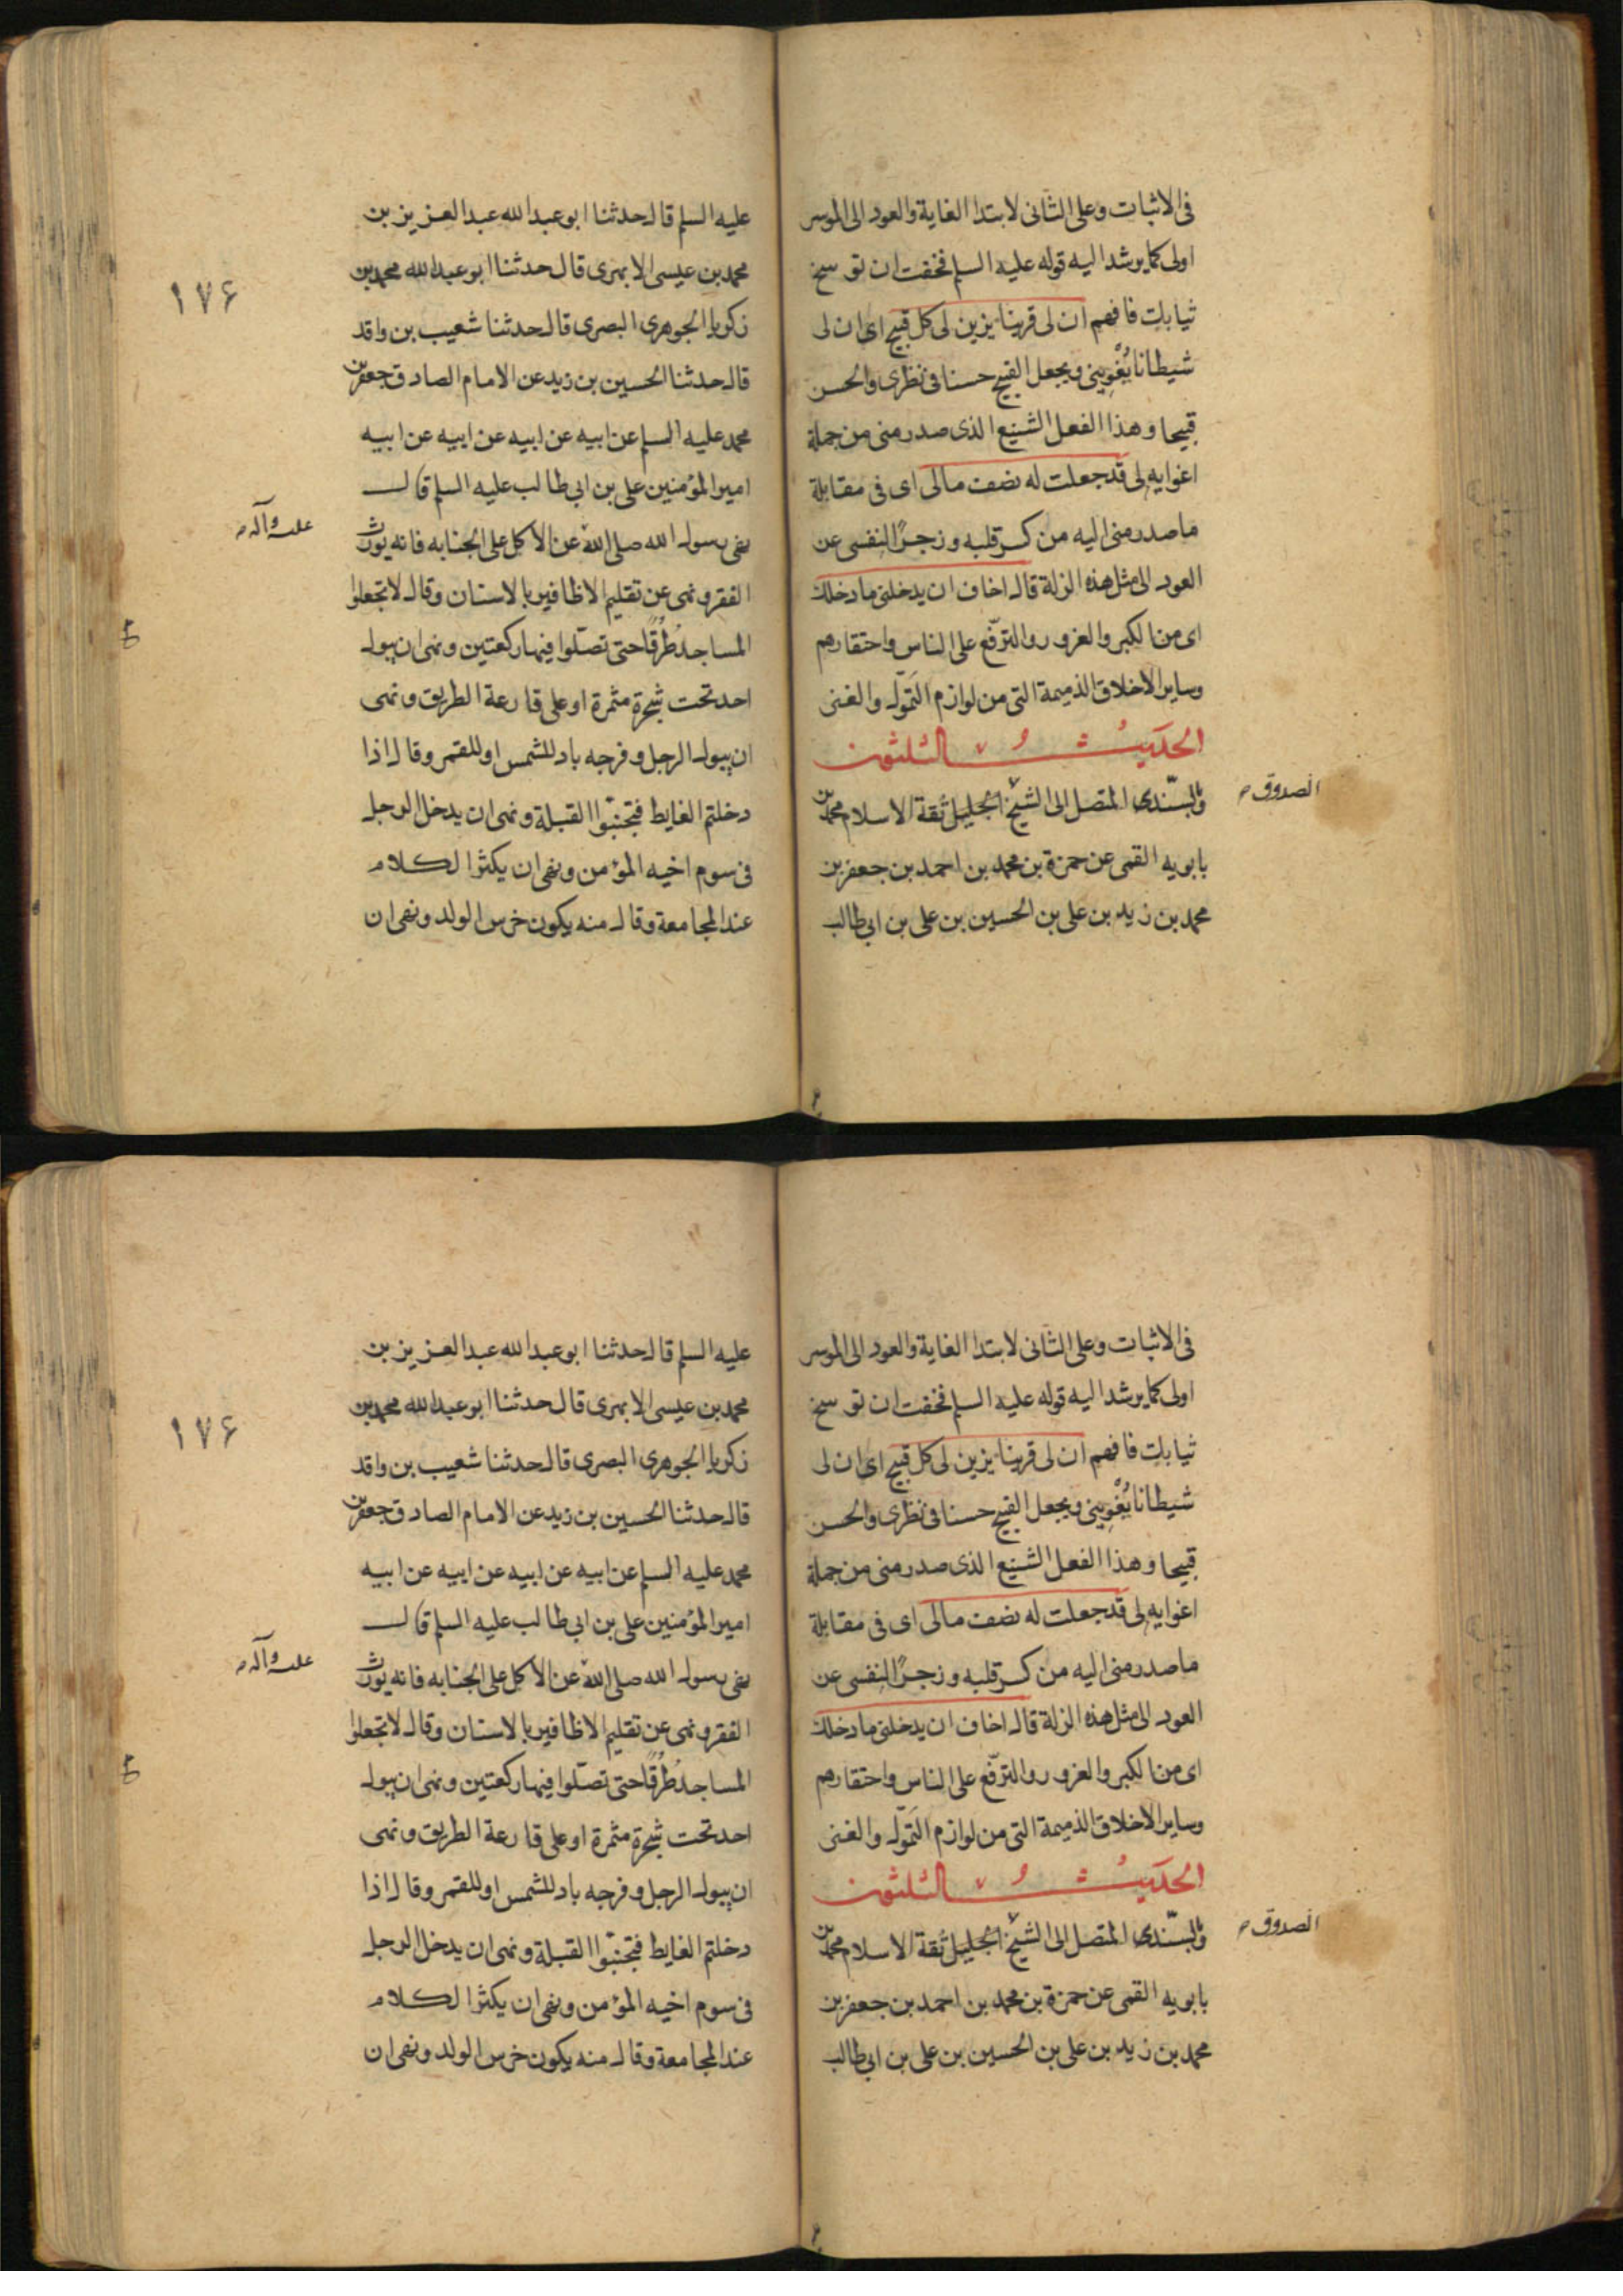 فى الاثبات وعلى الثانى لابتدا الغاية والعود الى الموسر
اولى كما يرشد اليه قوله عليه السلم فخفت ان توسخ
ثيابك فافهم ان لى قرينا يزين لى كل قبيح اى ان لى
شيطانا يُغْوِينى ويجعل القبيح حسنا فى نظرى والحسن
قبيحا وهذا الفعل الشنيع الذى صدر منى من جملة
اغوايه لى قد جعلت له نصف مالى اى فى مقابلة
ما صدر منى اليه من كسر قلبه وزجرًا لنفسى عن
العود الى مثل هذه الزلة قال اخاف ان يدخلنى ما دخلك
اى من الكبر والغرور والترفّع على الناس واحتقارهم
وساير الاخلاق الذميمة التى من لوازم التموّل والغنى
الحديث الثلثون
وبالسّند المتصل الى الشيخ الجليل ثقة الاسلام محمد بن
الصدوق
بابويه القمى عن حمزة بن محمد بن احمد بن جعفر بن
محمد بن زيد بن على بن الحسين بن على بن ابى طالب
عليه السلم قال حدثنا ابو عبد الله عبد العزيز بن
محمد بن عيسى الابهرى قال حدثنا ابو عبد الله محمد بن
١٧۶
زكريا الجوهرى البصرى قال حدثنا شعيب بن واقد
قال حدثنا الحسين بن زيد عن الامام الصادق جعفر بن
محمد عليه السلم عن ابيه عن ابيه عن ابيه عن ابيه
امير المؤمنين على بن ابى طالب عليه السلم قال
نهى رسول الله صلى الله عن الاكل على الجنابه فانه يورث
عليه وآله
الفقر ونهى عن تقليم الاظافير بالاسنان وقال لا تجعلوا
المساجد طُرُقًا حتى تصلّوا فيها ركعتين ونهى ان يبول
احد تحت شجرة مثمرة او على قارعة الطريق ونهى
ان يبول الرجل وفرجه باد للشمس او للقمر وقال اذا
دخلتم الغايط فتجنبّوا القبلة ونهى ان يدخل الرجل
فى سوم اخيه المؤمن ونهى ان يكثر الكلام
عند المجامعة وقال منه يكون خرس الولد ونهى ان
فى الاثبات وعلى الثانى لابتدا الغاية والعود الى الموسر
اولى كما يرشد اليه قوله عليه السلم فخفت ان توسخ
ثيابك فافهم ان لى قرينا يزين لى كل قبيح اى ان لى
شيطانا يُغْوِينى ويجعل القبيح حسنا فى نظرى والحسن
قبيحا وهذا الفعل الشنيع الذى صدر منى من جملة
اغوايه لى قد جعلت له نصف مالى اى فى مقابلة
ما صدر منى اليه من كسر قلبه وزجرًا لنفسى عن
العود الى مثل هذه الزلة قال اخاف ان يدخلنى ما دخلك
اى من الكبر والغرور والترفّع على الناس واحتقارهم
وساير الاخلاق الذميمة التى من لوازم التموّل والغنى
الحديث الثلثون
وبالسّند المتصل الى الشيخ الجليل ثقة الاسلام محمد بن
الصدوق
بابويه القمى عن حمزة بن محمد بن احمد بن جعفر بن
محمد بن زيد بن على بن الحسين بن على بن ابى طالب
عليه السلم قال حدثنا ابو عبد الله عبد العزيز بن
محمد بن عيسى الابهرى قال حدثنا ابو عبد الله محمد بن
١٧۶
زكريا الجوهرى البصرى قال حدثنا شعيب بن واقد
قال حدثنا الحسين بن زيد عن الامام الصادق جعفر بن
محمد عليه السلم عن ابيه عن ابيه عن ابيه عن ابيه
امير المؤمنين على بن ابى طالب عليه السلم قال
نهى رسول الله صلى الله عن الاكل على الجنابه فانه يورث
عليه وآله
الفقر ونهى عن تقليم الاظافير بالاسنان وقال لا تجعلوا
المساجد طُرُقًا حتى تصلّوا فيها ركعتين ونهى ان يبول
احد تحت شجرة مثمرة او على قارعة الطريق ونهى
ان يبول الرجل وفرجه باد للشمس او للقمر وقال اذا
دخلتم الغايط فتجنبّوا القبلة ونهى ان يدخل الرجل
فى سوم اخيه المؤمن ونهى ان يكثر الكلام
عند المجامعة وقال منه يكون خرس الولد ونهى ان